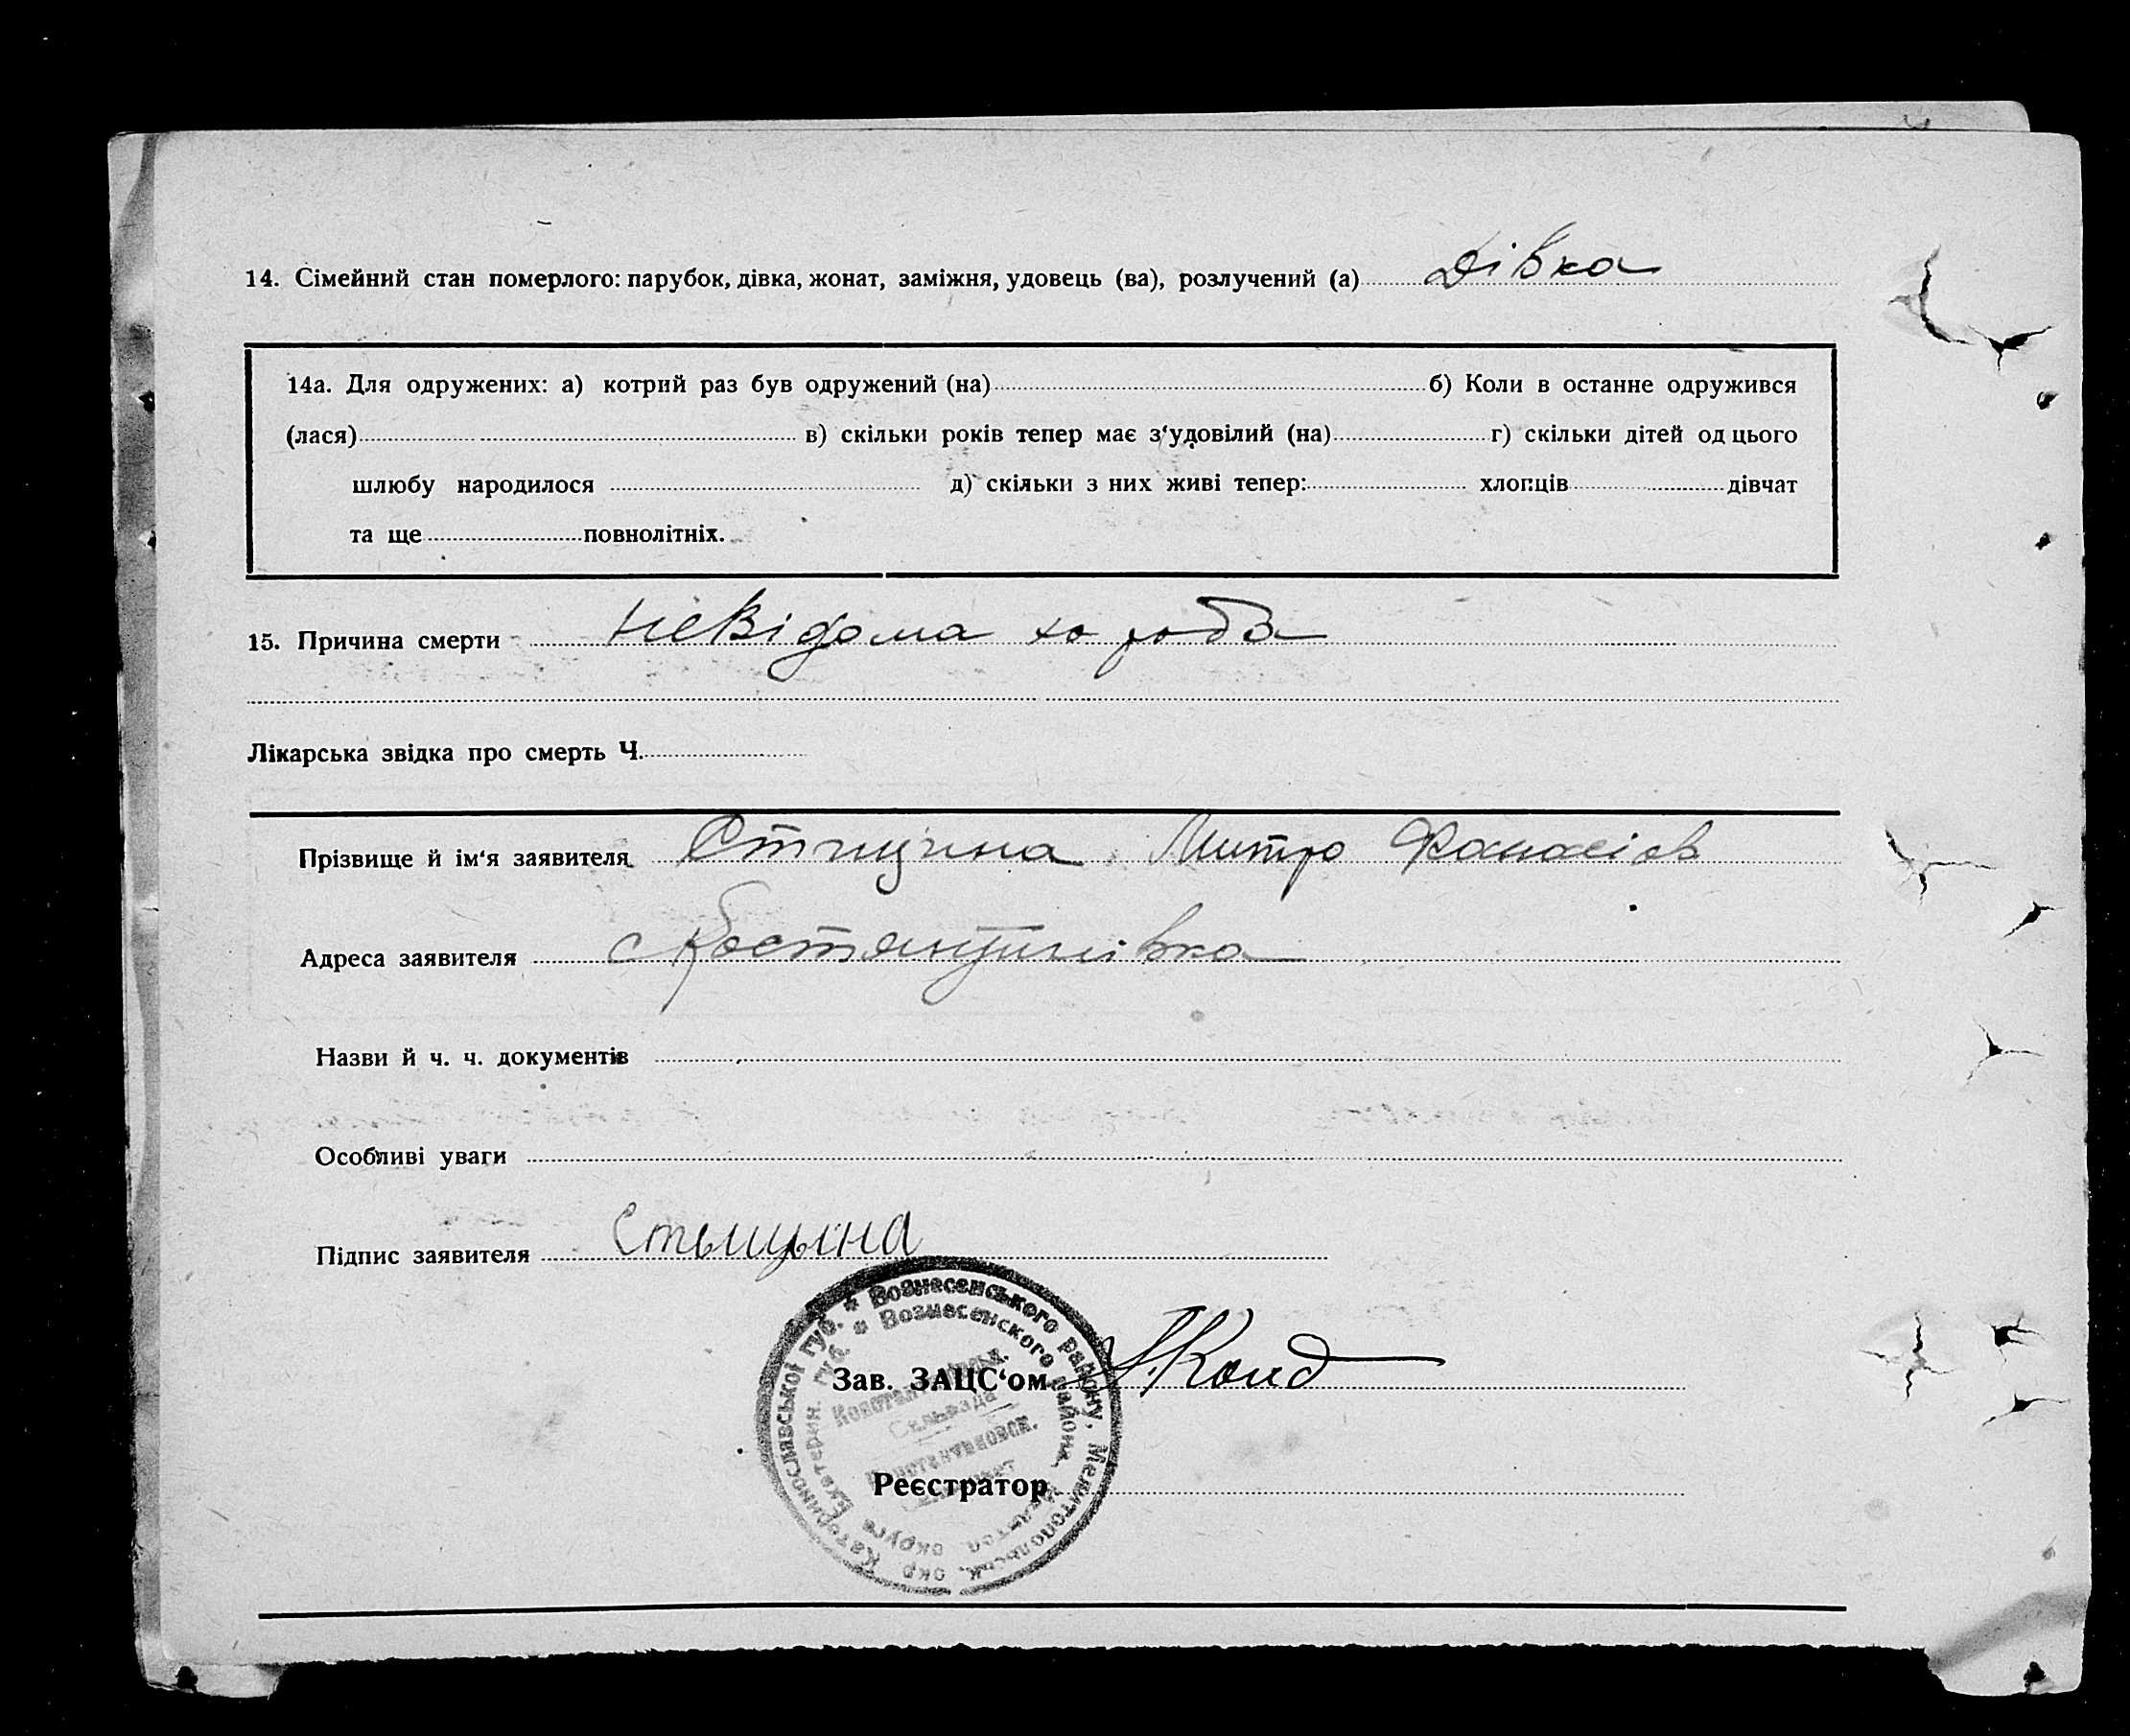 14. Сімейний стан померлого: парубок, дівка, жонат, заміжня, удовець (ва), розлучений (а) Дівка
14а. Для одружених: а) котрий раз був одружений (на) б) Коли в останнє одружився
(лася) в) скільки років тепер має з'удовілий (на) г) скільки дітей од цього
шлюбу народилося д) скільки з них живі тепер: хлопців дівчат
та ще повнолітніх.
15. Причина смерти невідома хороба
Лікарська звідка про смерть Ч.
Прізвище й ім'я заявителя Стицина Митро Фанасіов
Адреса заявителя с Костянтинівка
Назви й ч. ч. документів
Особливі уваги
Підпис заявителя
* Вознесенського району, Мелитопольськ. окр. Катеринославської губ.
* Вознесенского района, округа Екатерин. губ.
Зав. ЗАЦС'ом
Реєстратор